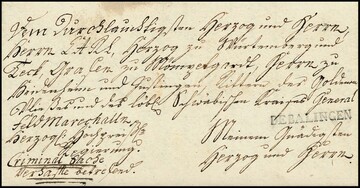 Dem Durchlauchtigsten Herzog und Herrn,
Herrn CARL, Herzog zu Würtemberg und
Teck, Grafen zu Mömpelgardt, Herrn zu
Heidenheim und Justingen, Rittern des Goldenen
und des löbl. Schwäbischen Craises General
Feld Marechalln
Herzogl. Hochpreißl.
Regierung.
Criminal Sache
betreffend.
BEBALINGEN
Meinem Gnädigsten
Herzog und Herrn.